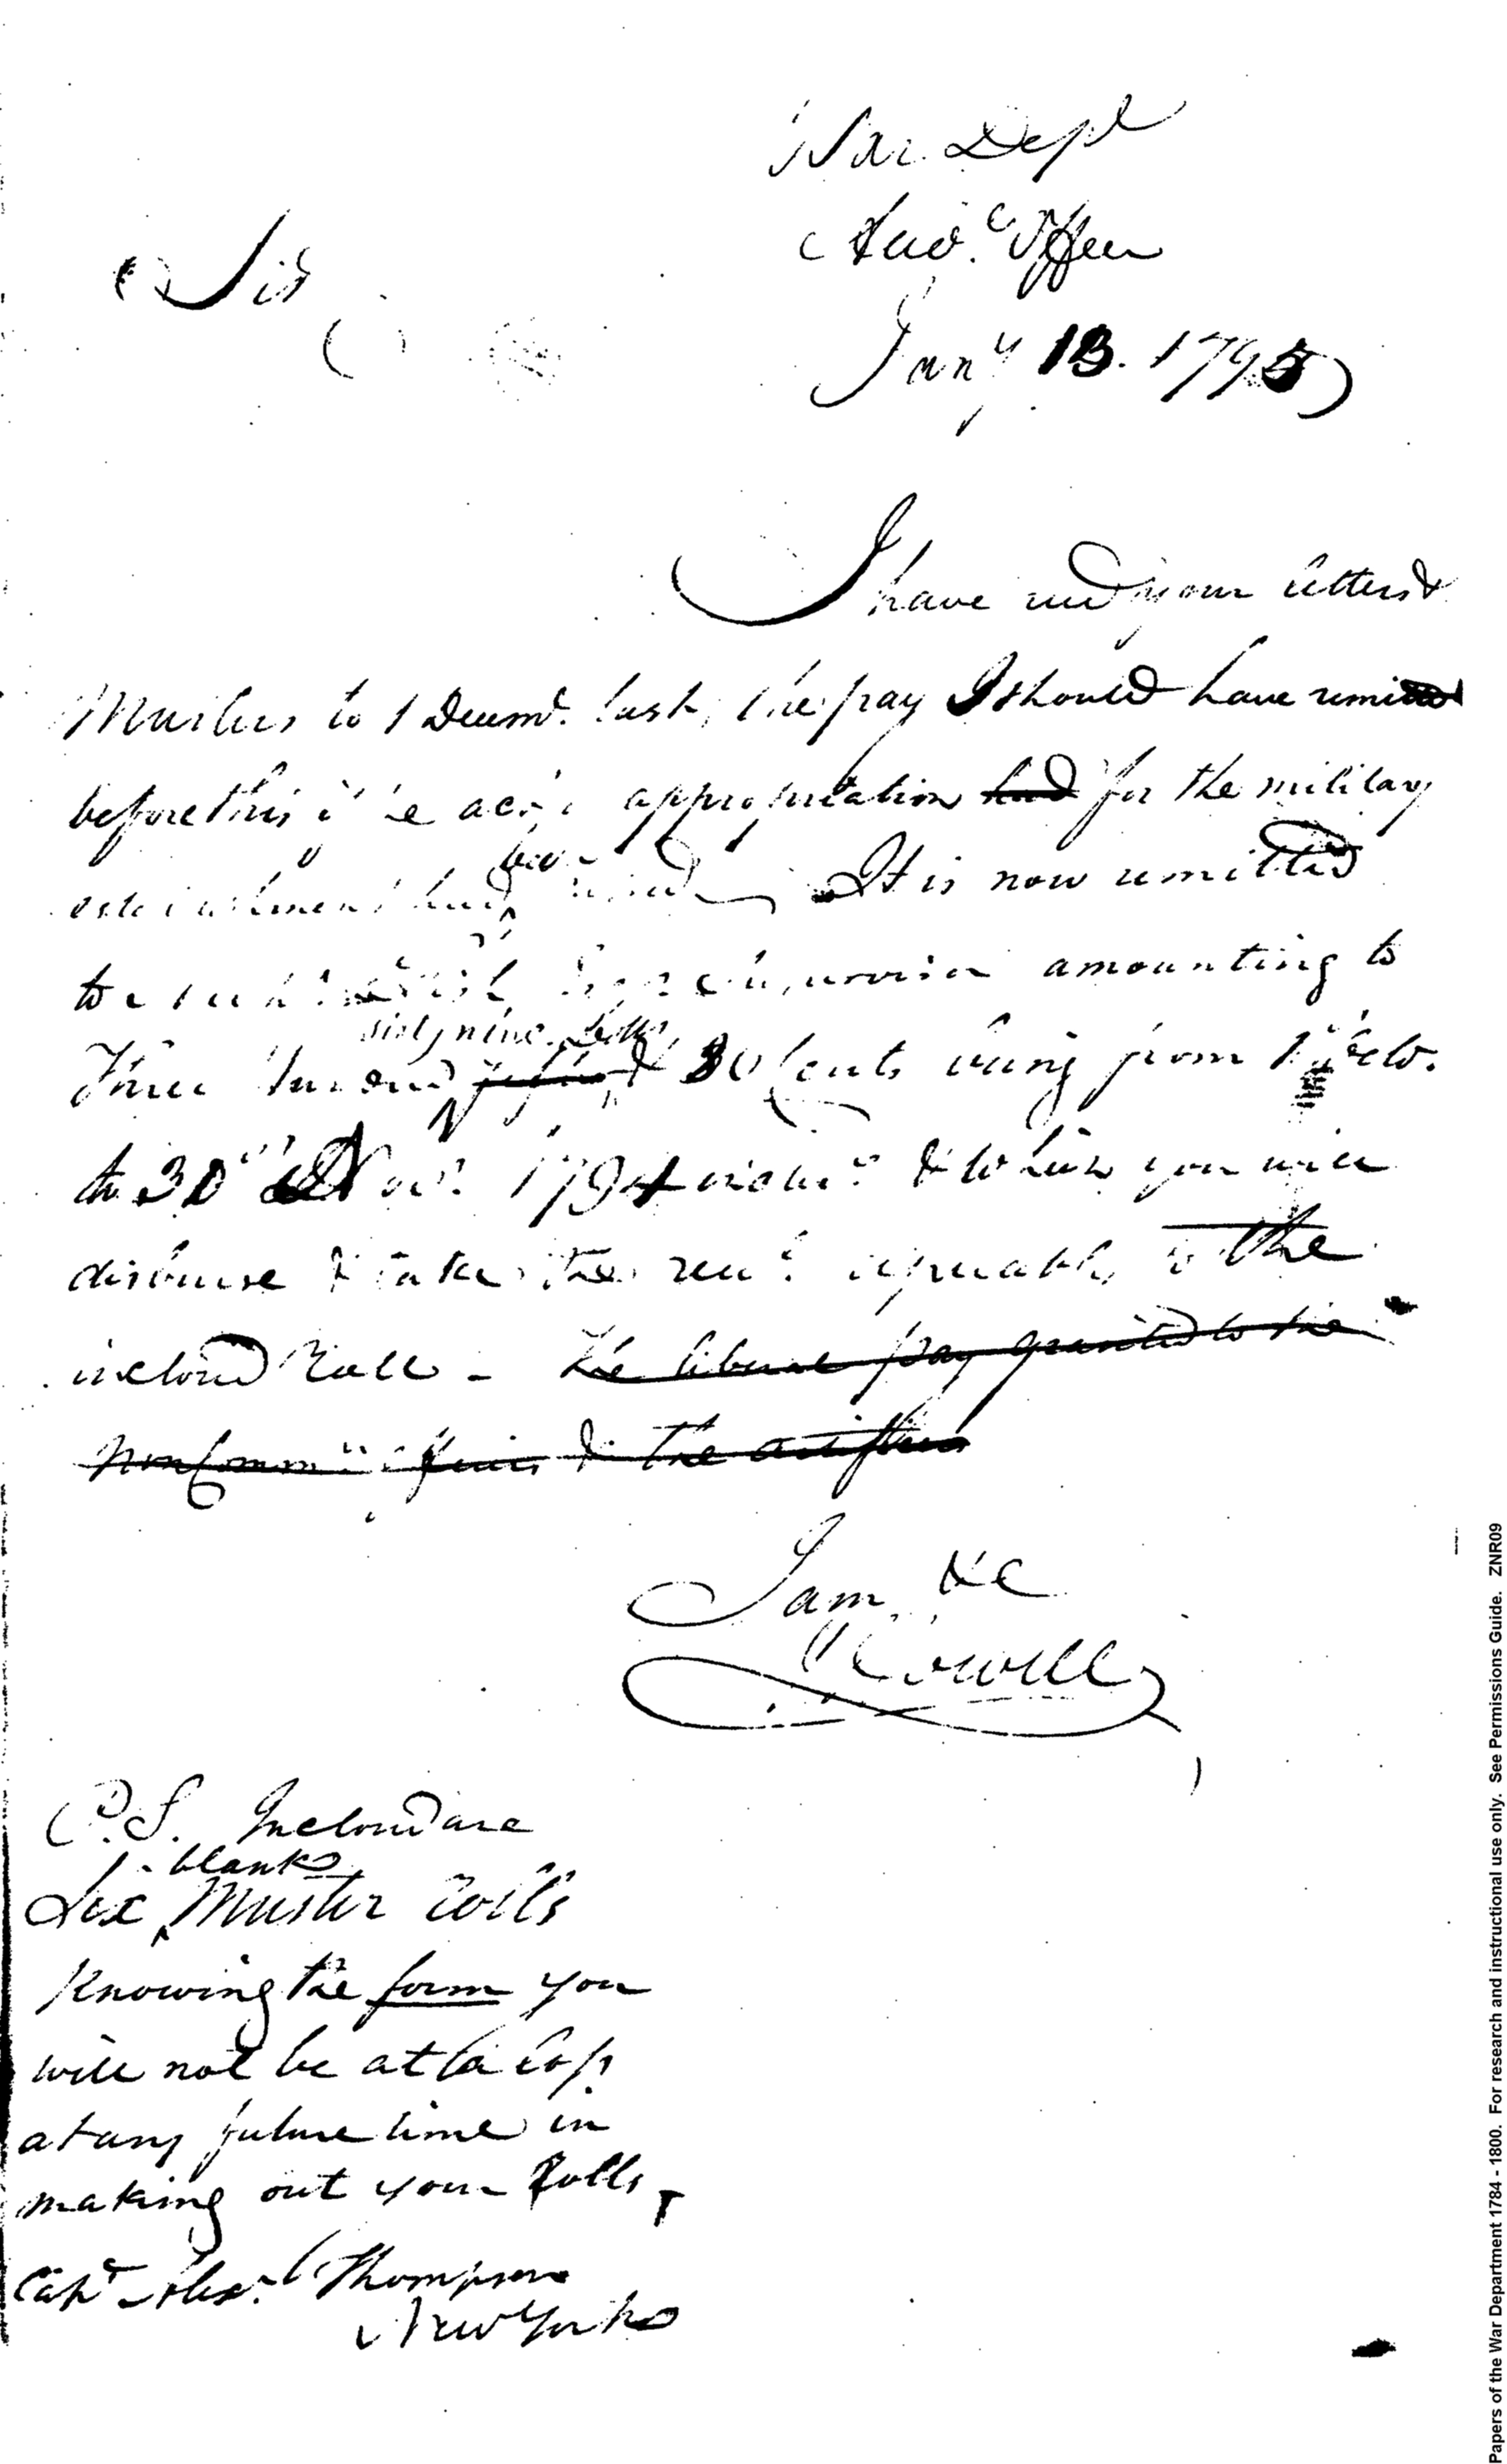 War Dept
Acco. Office
Jany 13. 1795
Sir
I have recd your letters &
Musters to 1 Decemr. last, the pay I should have remitted
before this if the appropriation had for the military
establishment had been . It is now remitted
to amounting to
sixty nine Dollrs
Three hundred & 30 Cents being from 1st Octo.
to 30th Nov. 1794 inclusive & which you will
disburse & take the recs. agreeable to the
inclosed Roll - The liberal pay granted to the
non Comm officers & the artificers
I am &c
J Howell
P.S. Inclosed are
blank
Six Muster rolls
Knowing the form you
will not be at a loss
at any future time in
making out your Rolls,
Capt Alexr. Thompson
New York
Papers of the War Department 1784 - 1800. For research and instructional use only. See Permissions Guide. ZNR09